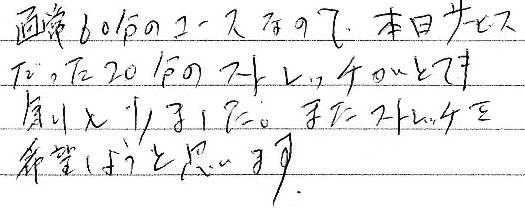 通常60分のコースなので、本日サービス
だった20分のストレッチがとても
良かったです。またストレッチを
希望しようと思います。